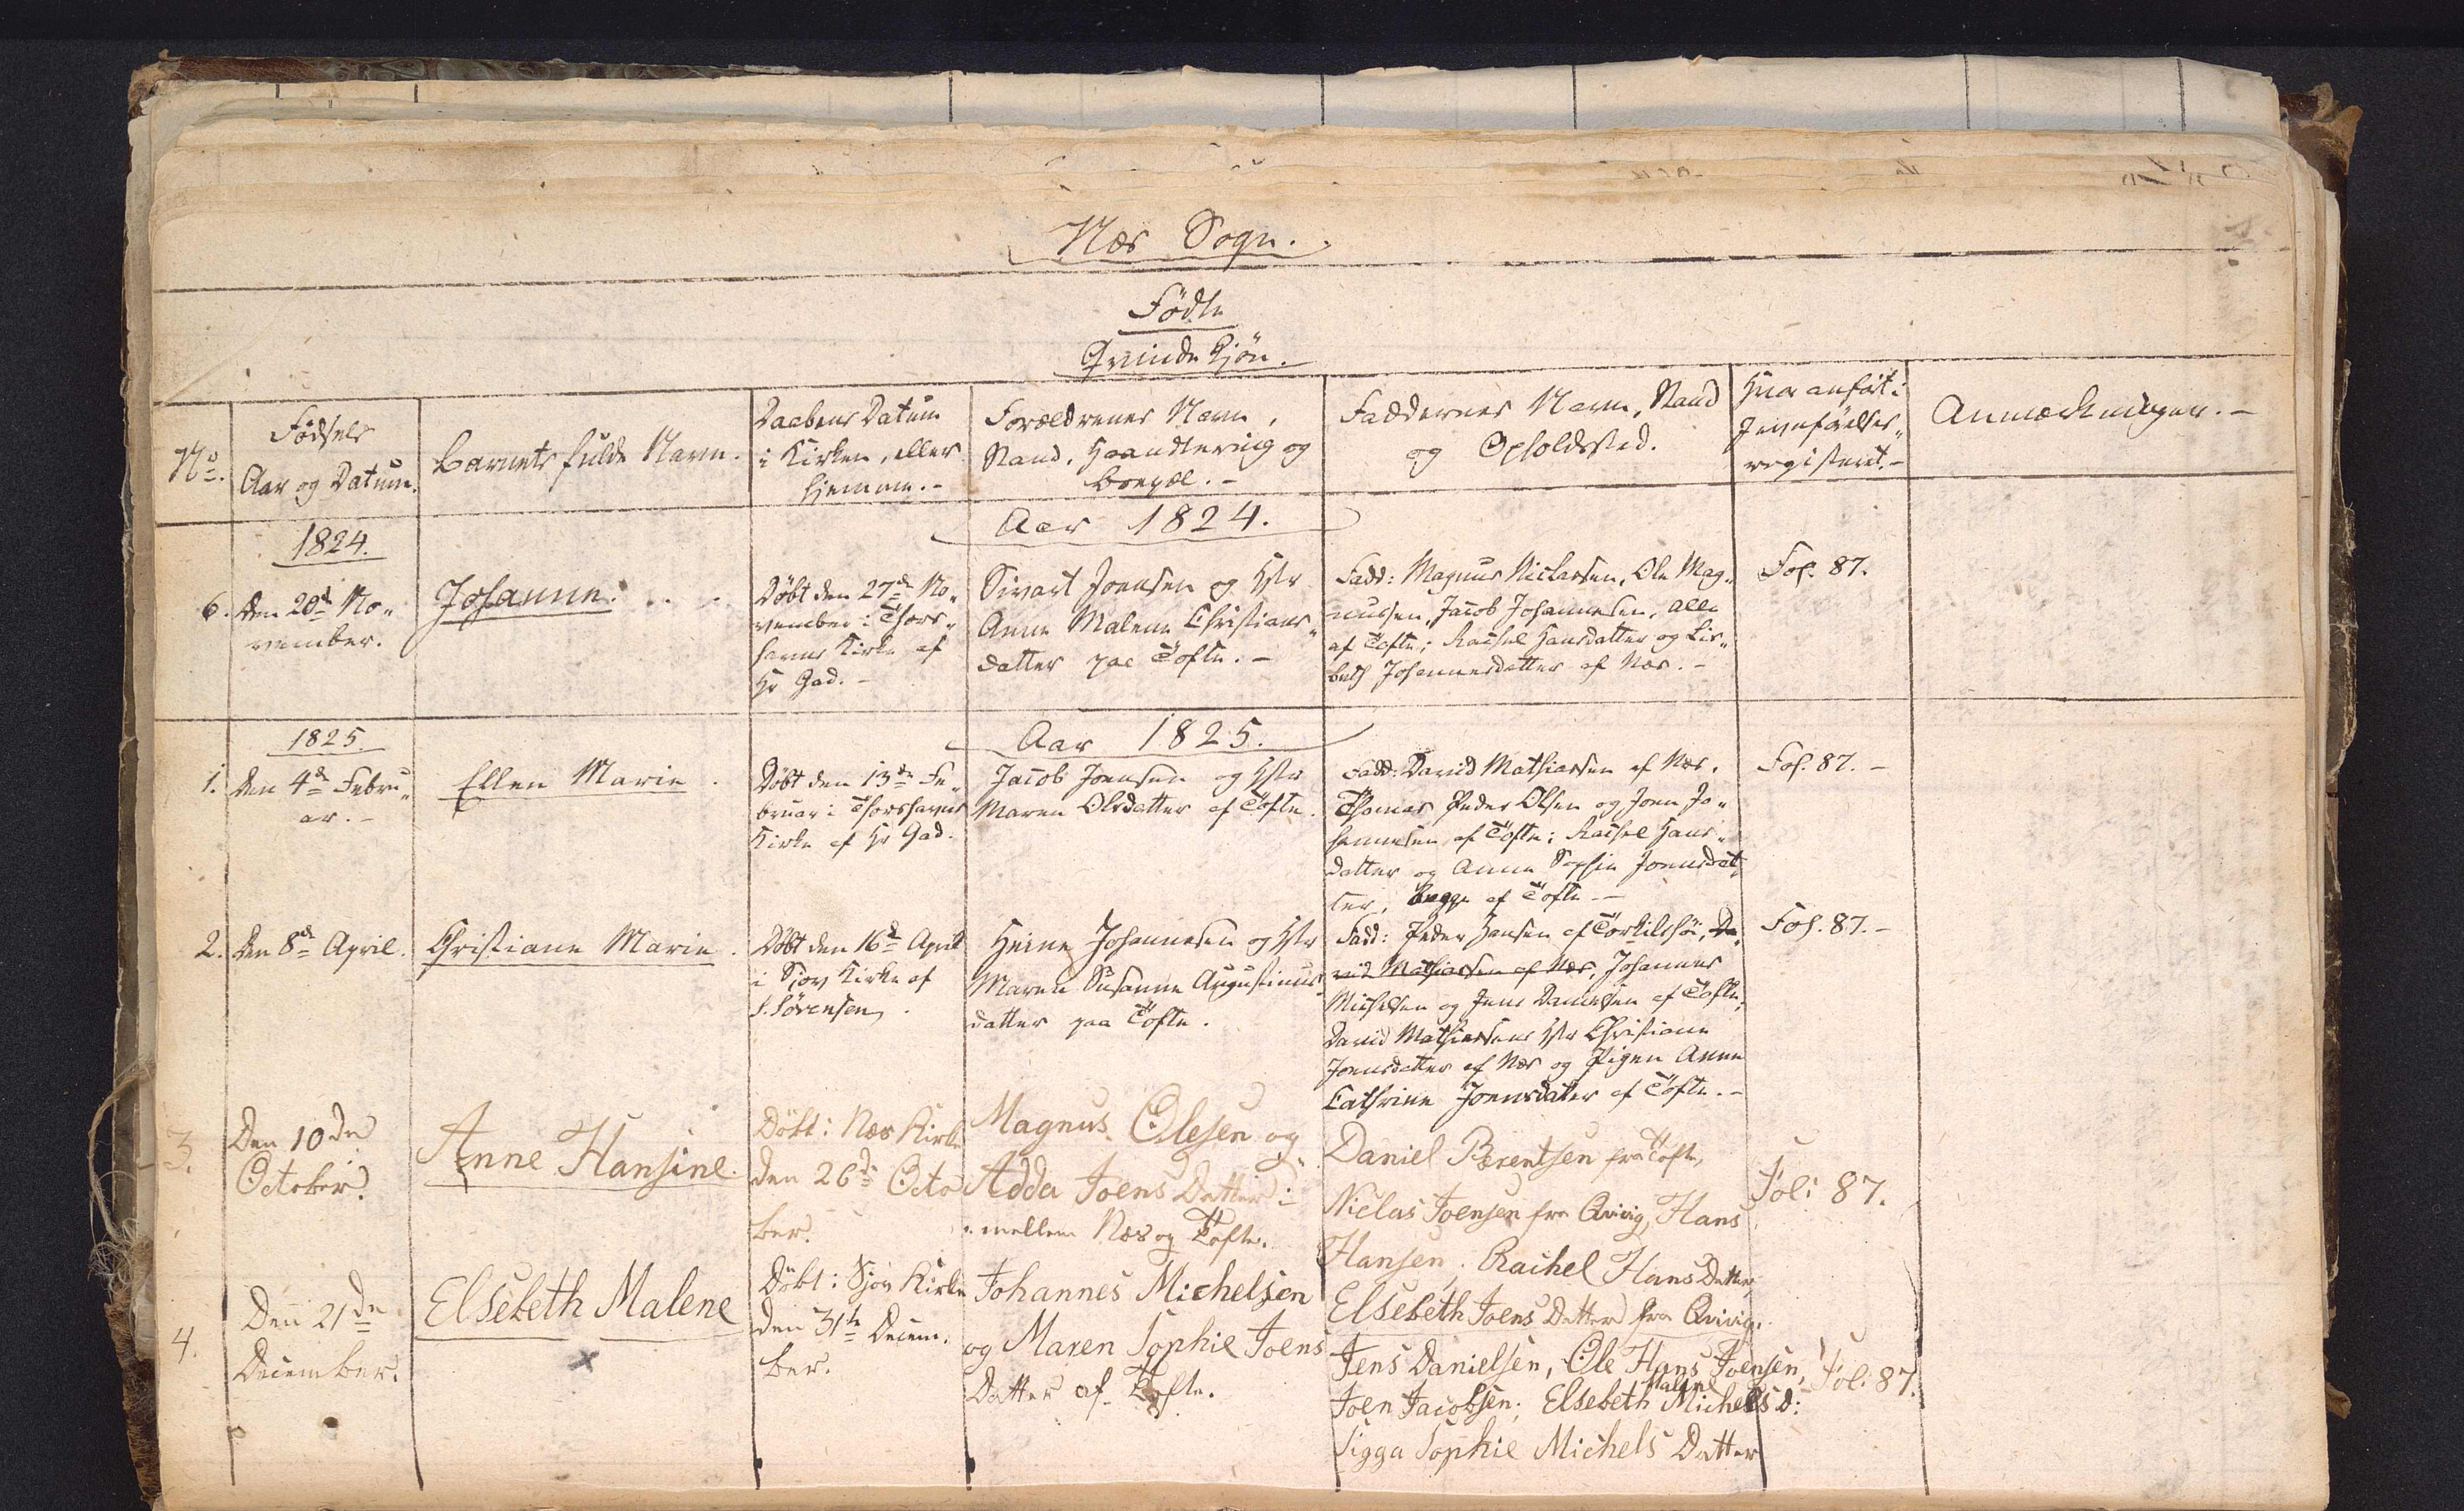 Næs Sogn.
Födte
Qvindekjön.
No.
Födsels
Aar og Datum.
Barnets fulde Navn.
Daabens Datum
i Kirken, eller
hjemme.-
Forældrenes Navn,
Stand, Haandtering og
Boepæl.-
Faddernes Navn, Stand
og Opholdssted.
Hvor anfört i
Jevnförelses„
registeret.-
Anmærkninger.-
Aar 1824.
1824.
6.
den 20de No„
vember.
Johanne.
Döbt den 27de No„
vember i Thors„
havns Kirke af
Hr Gad.-
Sivart Joensen og Hstr
Anne Malene Christians„
datter paa Töfte.-
Fadd: Magnus Niclassen, Ole Mag„
nussen, Jacob Johannesen, alle
af Töfte; Rachel Hansdatter og Lis„
beth Johannesdatter af Næs.-
Fol. 87.
Aar 1825.
1825.
1.
den 4de Febru„
ar.-
Ellen Marie.
Döbt den 13de Fe„
bruar i Thorshavns
Kirke af Hr Gad.
Jacob Joensen og Hstr
Maren Olsdatter af Töfte.
Fadd: David Mathiassen af Næs,
Thomas Peder Olsen og Joen Jo„
hannesen af Töfte; Rachel Hans„
datter og Anne Sophie Joensdat„
ter, begge af Töfte.-
Fol. 87.-
2.
den 8de April.
Christiane Marie.
Döbt den 16de April
i Sjov Kirke af
S. Sörensen.
Heine Johannesen og Hstr
Maren Susanne Augustinus„
datter paa Töfte.
Fadd: Peder Hansen af Torkilshöi, Da„
vid Mathiassen af Næs, Johannes
Michelsen og Jens Danielsen af Töfte;
David Mathiassens Hstr Christiane
Joensdatter af Næs og Pigen Anne
Cathrine Joensdatter af Töfte.-
Fol. 87.-
3.
Den 10de
October.
Anne Hansine.
Döbt i Næs Kirke
den 26de Octo
ber.
Magnus Olesen og
Adda Joens Datter i
mellem Næs og Töfte.
Daniel Berentsen fra Töfte,
Niclas Joensen fra Qvivig, Hans
Hansen; Rachel Hans Datter,
Elsebeth Joens Datter fra Qvivig.
Fol: 87.
4.
Den 21de
December.
Elsebeth Malene
x
Döbt i Sjov Kirke
den 31te Decem.
ber.
Johannes Michelsen
og Maren Sophie Joens
Datter af Töfte.
Jens Danielsen, Ole Hans Joensen,
Joen Jacobsen; Elsebeth Malene Michels D:
Sigga Sophie Michels Datter
Fol: 87.